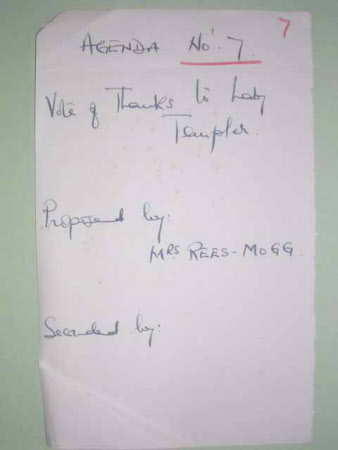 7
AGENDA No. 7.
Vote of Thanks to Lady
Templer.
Proposed by:
MRS REES-MOGG.
Seconded by: